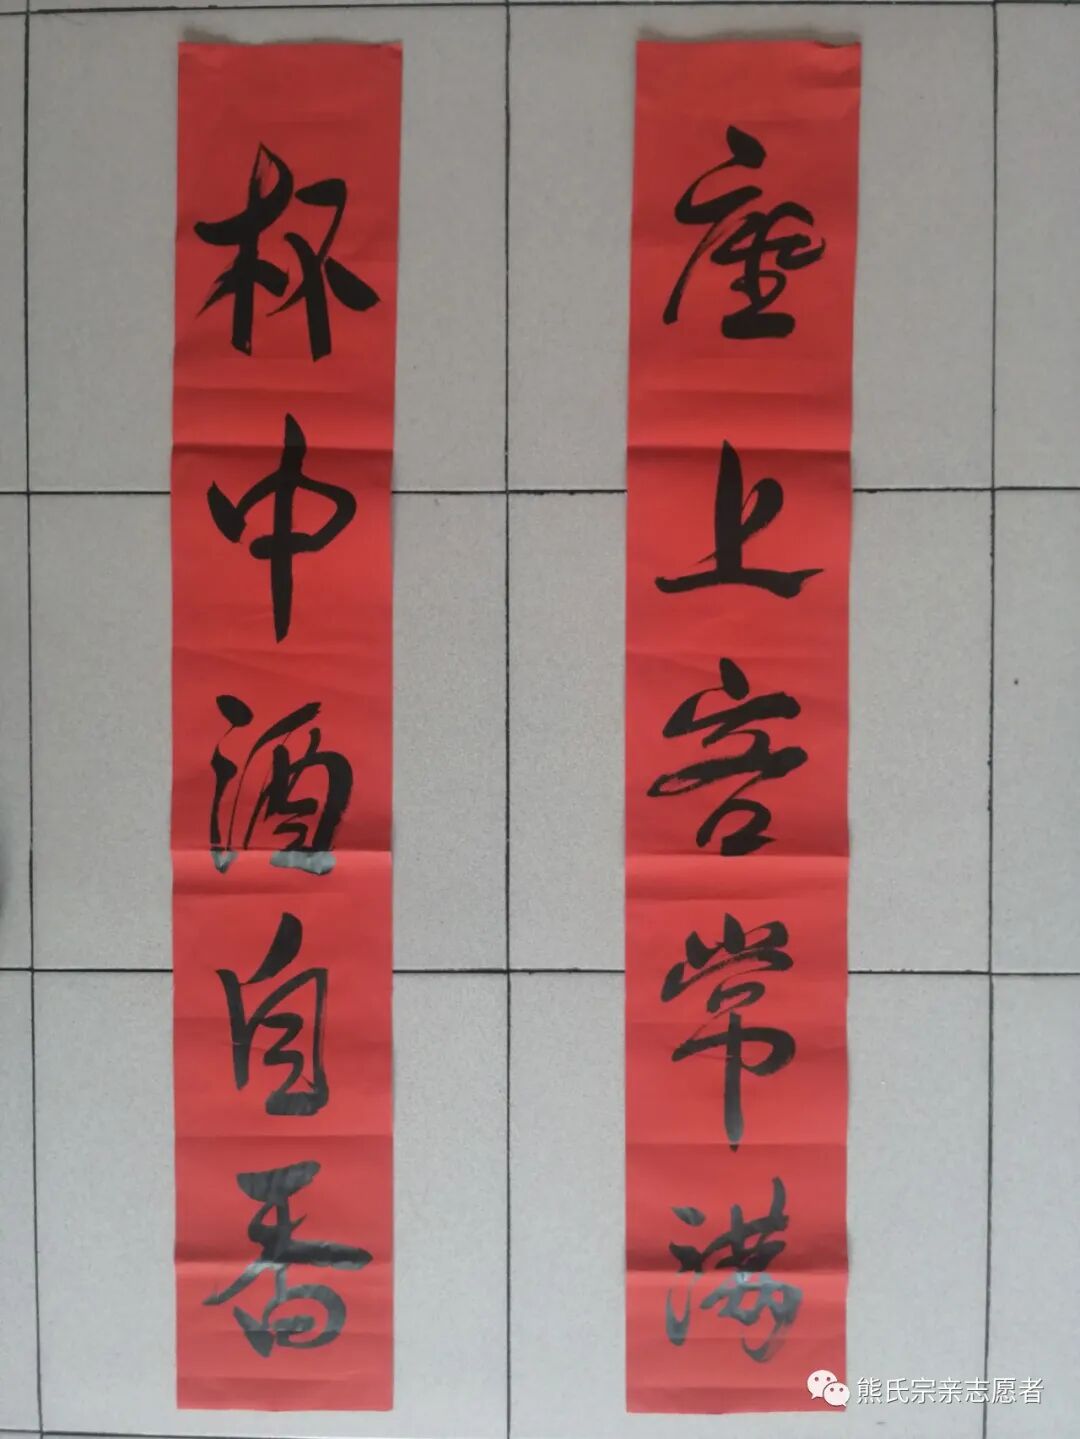 座上客常满
杯中酒自香
熊氏宗亲志愿者